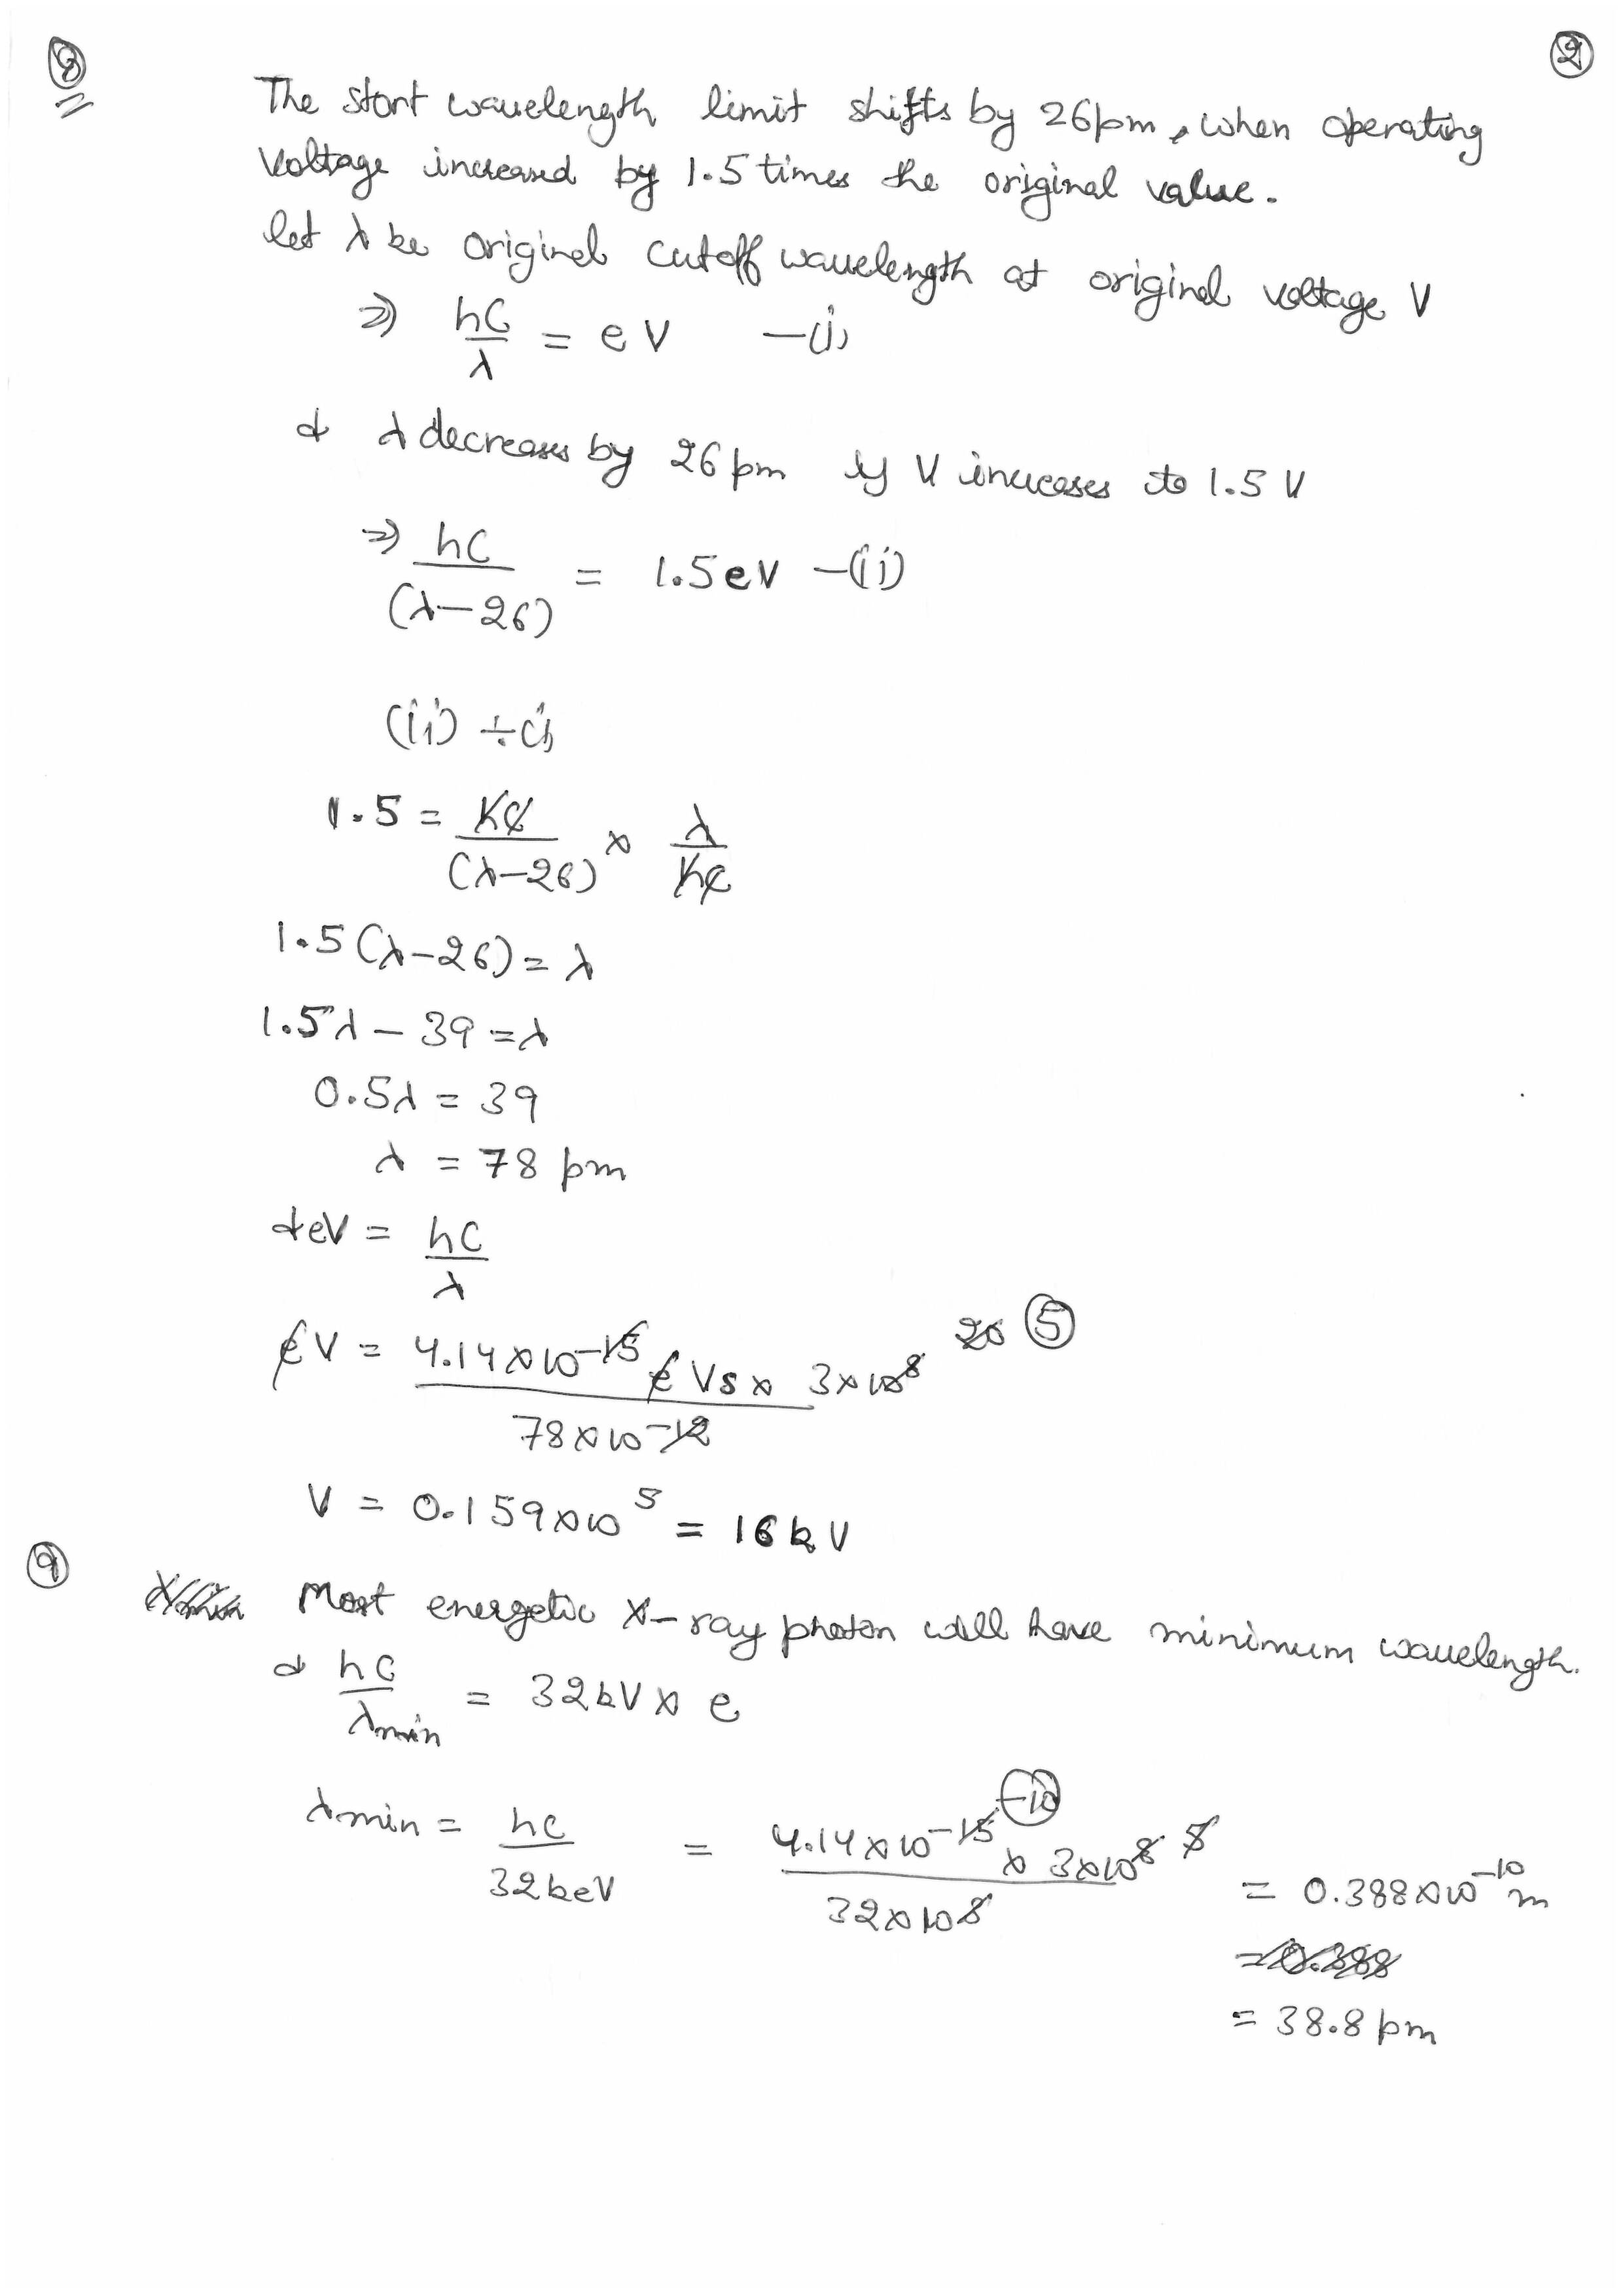 8
2
The short wavelength limit shifts by 26pm, when operating
voltage increased by 1.5 times the original value.
let λ be original cutoff wavelength at original voltage V
⇒ hC/λ = eV -(i)
& λ decreases by 26 pm if V increases to 1.5 V
⇒ hC/(λ-26) = 1.5eV -(ii)
(ii) ÷ (i)
1.5 = hC/(λ-26) × λ/hC
1.5(λ-26) = λ
1.5λ - 39 = λ
0.5λ = 39
λ = 78 pm
& eV = hC/λ
eV = 4.14×10^-15 eVs × 3×10^8 / 78×10^-12 20 5
V = 0.159×10^5 = 16kV
9
Most energetic X-ray photon will have minimum wavelength.
& hC/λmin = 32kV × e
λmin = hc/32keV = 4.14×10^-15 × 3×10^8 / 32×10^3 -10 5 = 0.388×10^-10 m
= 0.388
= 38.8 pm